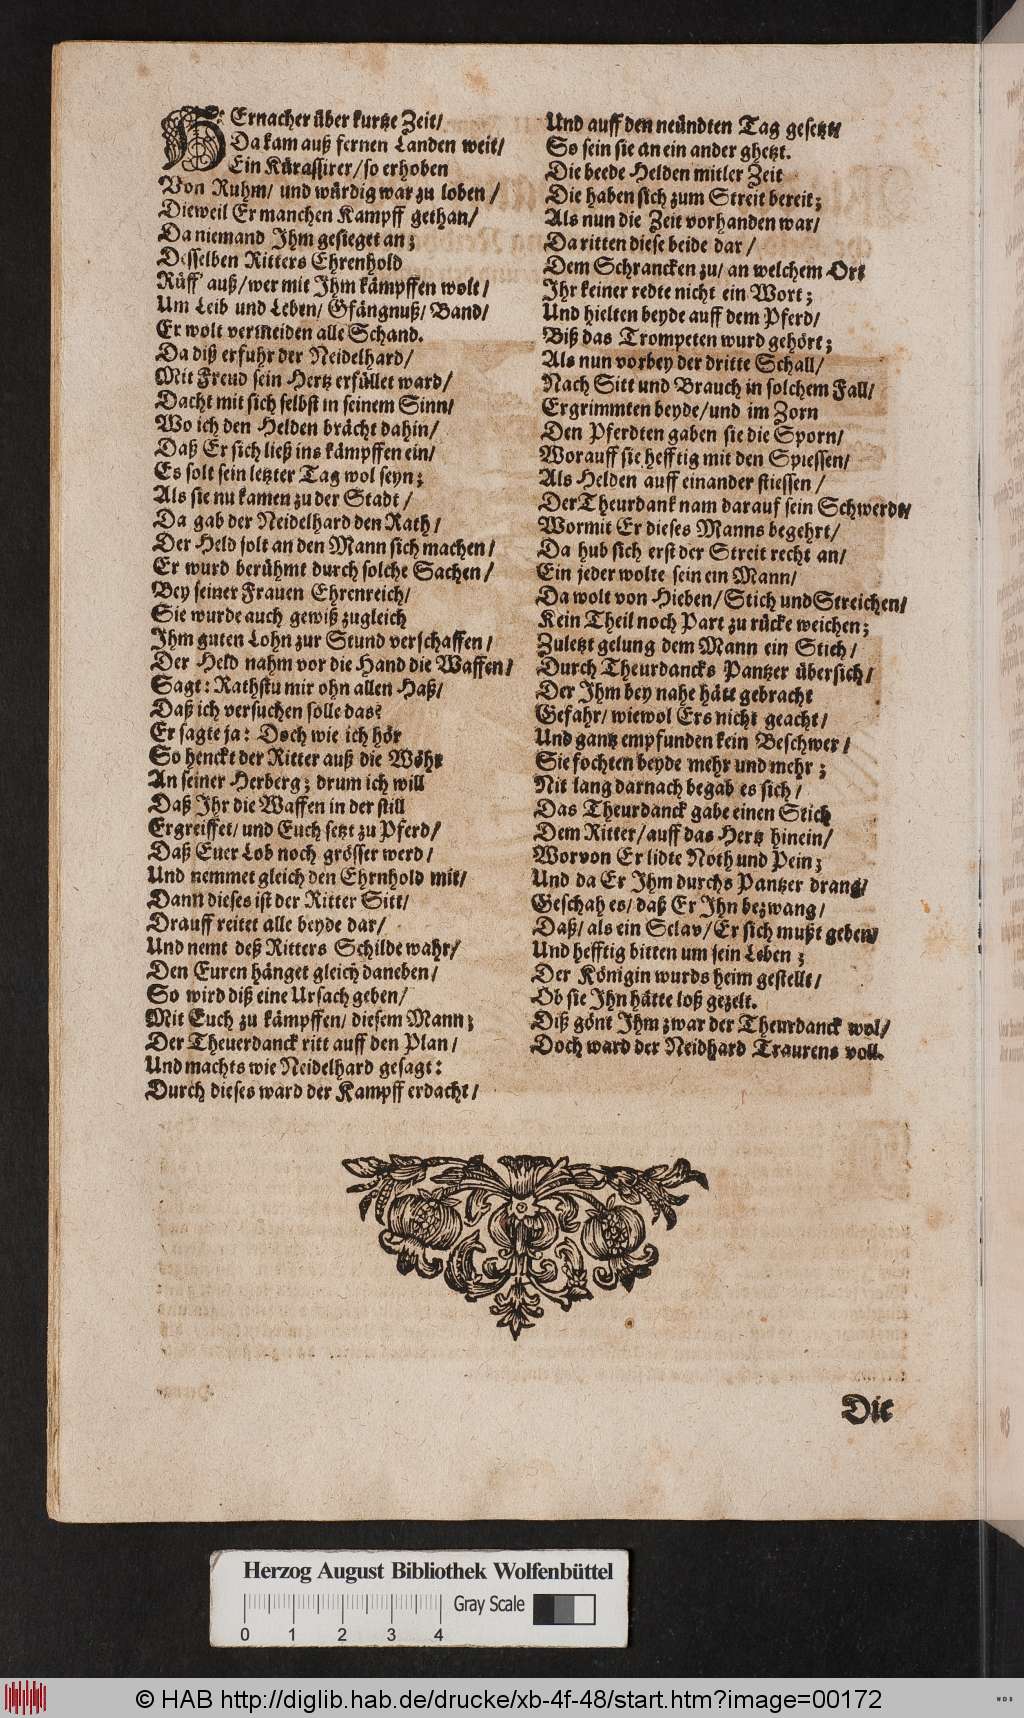 HErnacher über kurtze Zeit/
Da kam auß fernen Landen weit/
Ein Kürassirer/ so erhoben
Von Ruhm/ und würdig war zu loben/
Dieweil Er manchen Kampff gethan/
Da niemand Ihm gesieget an;
Desselben Ritters Ehrenhold
Rüff auß/ wer mit Ihm kämpffen wolt/
Um Leib und Leben/ Gfängnuß/ Band/
Er wolt vermeiden alle Schand.
Da diß erfuhr der Neidelhard/
Mit Freud sein Hertz erfüllet ward/
Dacht mit sich selbst in seinem Sinn/
Wo ich den Helden brächt dahin/
Daß Er sich ließ ins kämpffen ein/
Es solt sein letzter Tag wol seyn;
Als sie nu kamen zu der Stadt/
Da gab der Neidelhard den Rath/
Der Held solt an den Mann sich machen/
Er wurd berühmt durch solche Sachen/
Bey seiner Frauen Ehrenreich/
Sie wurde auch gewiß zugleich
Ihm guten Lohn zur Stund verschaffen/
Der Held nahm vor die Hand die Waffen/
Sagt: Rathstu mir ohn allen Haß/
Daß ich versuchen solle das?
Er sagte ja: Doch wie ich hör
So henckt der Ritter auß die Wöhr
An seiner Herberg; drum ich will
Daß Ihr die Waffen in der still
Ergreiffet/ und Euch setzt zu Pferd/
Daß Euer Lob noch grösser werd/
Und nemmet gleich den Ehrnhold mit/
Dann dieses ist der Ritter Sitt/
Drauff reitet alle beyde dar/
Und nemt deß Ritters Schilde wahr/
Den Euren hänget gleich daneben/
So wird diß eine Ursach geben/
Mit Euch zu kämpffen/ diesem Mann;
Der Theuerdanck ritt auff den Plan/
Und machts wie Neidelhard gesagt:
Durch dieses ward der Kampff erdacht/
Und auff den neündten Tag gesetzt/
So sein sie an ein ander ghetzt.
Die beede Helden mitler Zeit
Die haben sich zum Streit bereit;
Als nun die Zeit vorhanden war/
Da ritten diese beide dar/
Dem Schrancken zu/ an welchem Ort
Ihr keiner redte nicht ein Wort;
Und hielten beyde auff dem Pferd/
Biß das Trompeten wurd gehört;
Als nun vorbey der dritte Schall/
Nach Sitt und Brauch in solchem Fall/
Ergrimmten beyde/ und im Zorn
Den Pferdten gaben sie die Sporn/
Worauff sie hefftig mit den Spiessen/
Als Helden auff einander stiessen/
Der Theurdank nam darauf sein Schwerdt/
Wormit Er dieses Manns begehrt/
Da hub sich erst der Streit recht an/
Ein jeder wolte sein ein Mann/
Da wolt von Hieben/ Stich und Streichen/
Kein Theil noch Part zu rücke weichen;
Zuletzt gelung dem Mann ein Stich/
Durch Theurdancks Pantzer übersich/
Der Ihm bey nahe hätt gebracht
Gefahr/ wiewol Ers nicht geacht/
Und gantz empfunden kein Beschwer/
Sie fochten beyde mehr und mehr;
Nit lang darnach begab es sich/
Das Theurdanck gabe einen Stich
Dem Ritter/ auff das Hertz hinein/
Worvon Er lidte Noth und Pein;
Und da Er Ihm durchs Pantzer drang/
Geschah es/ daß Er Ihn bezwang/
Daß/ als ein Sclav/ Er sich mußt geben/
Und hefftig bitten um sein Leben;
Der Königin wurds heim gestellt/
Ob sie Ihn hätte loß gezelt.
Diß gönt Ihm zwar der Theurdanck wol/
Doch ward der Neidhard Traurens voll.
Die
Herzog August Bibliothek Wolfenbüttel
Gray Scale
0 1 2 3 4
© HAB http://diglib.hab.de/drucke/xb-4f-48/start.htm?image=00172